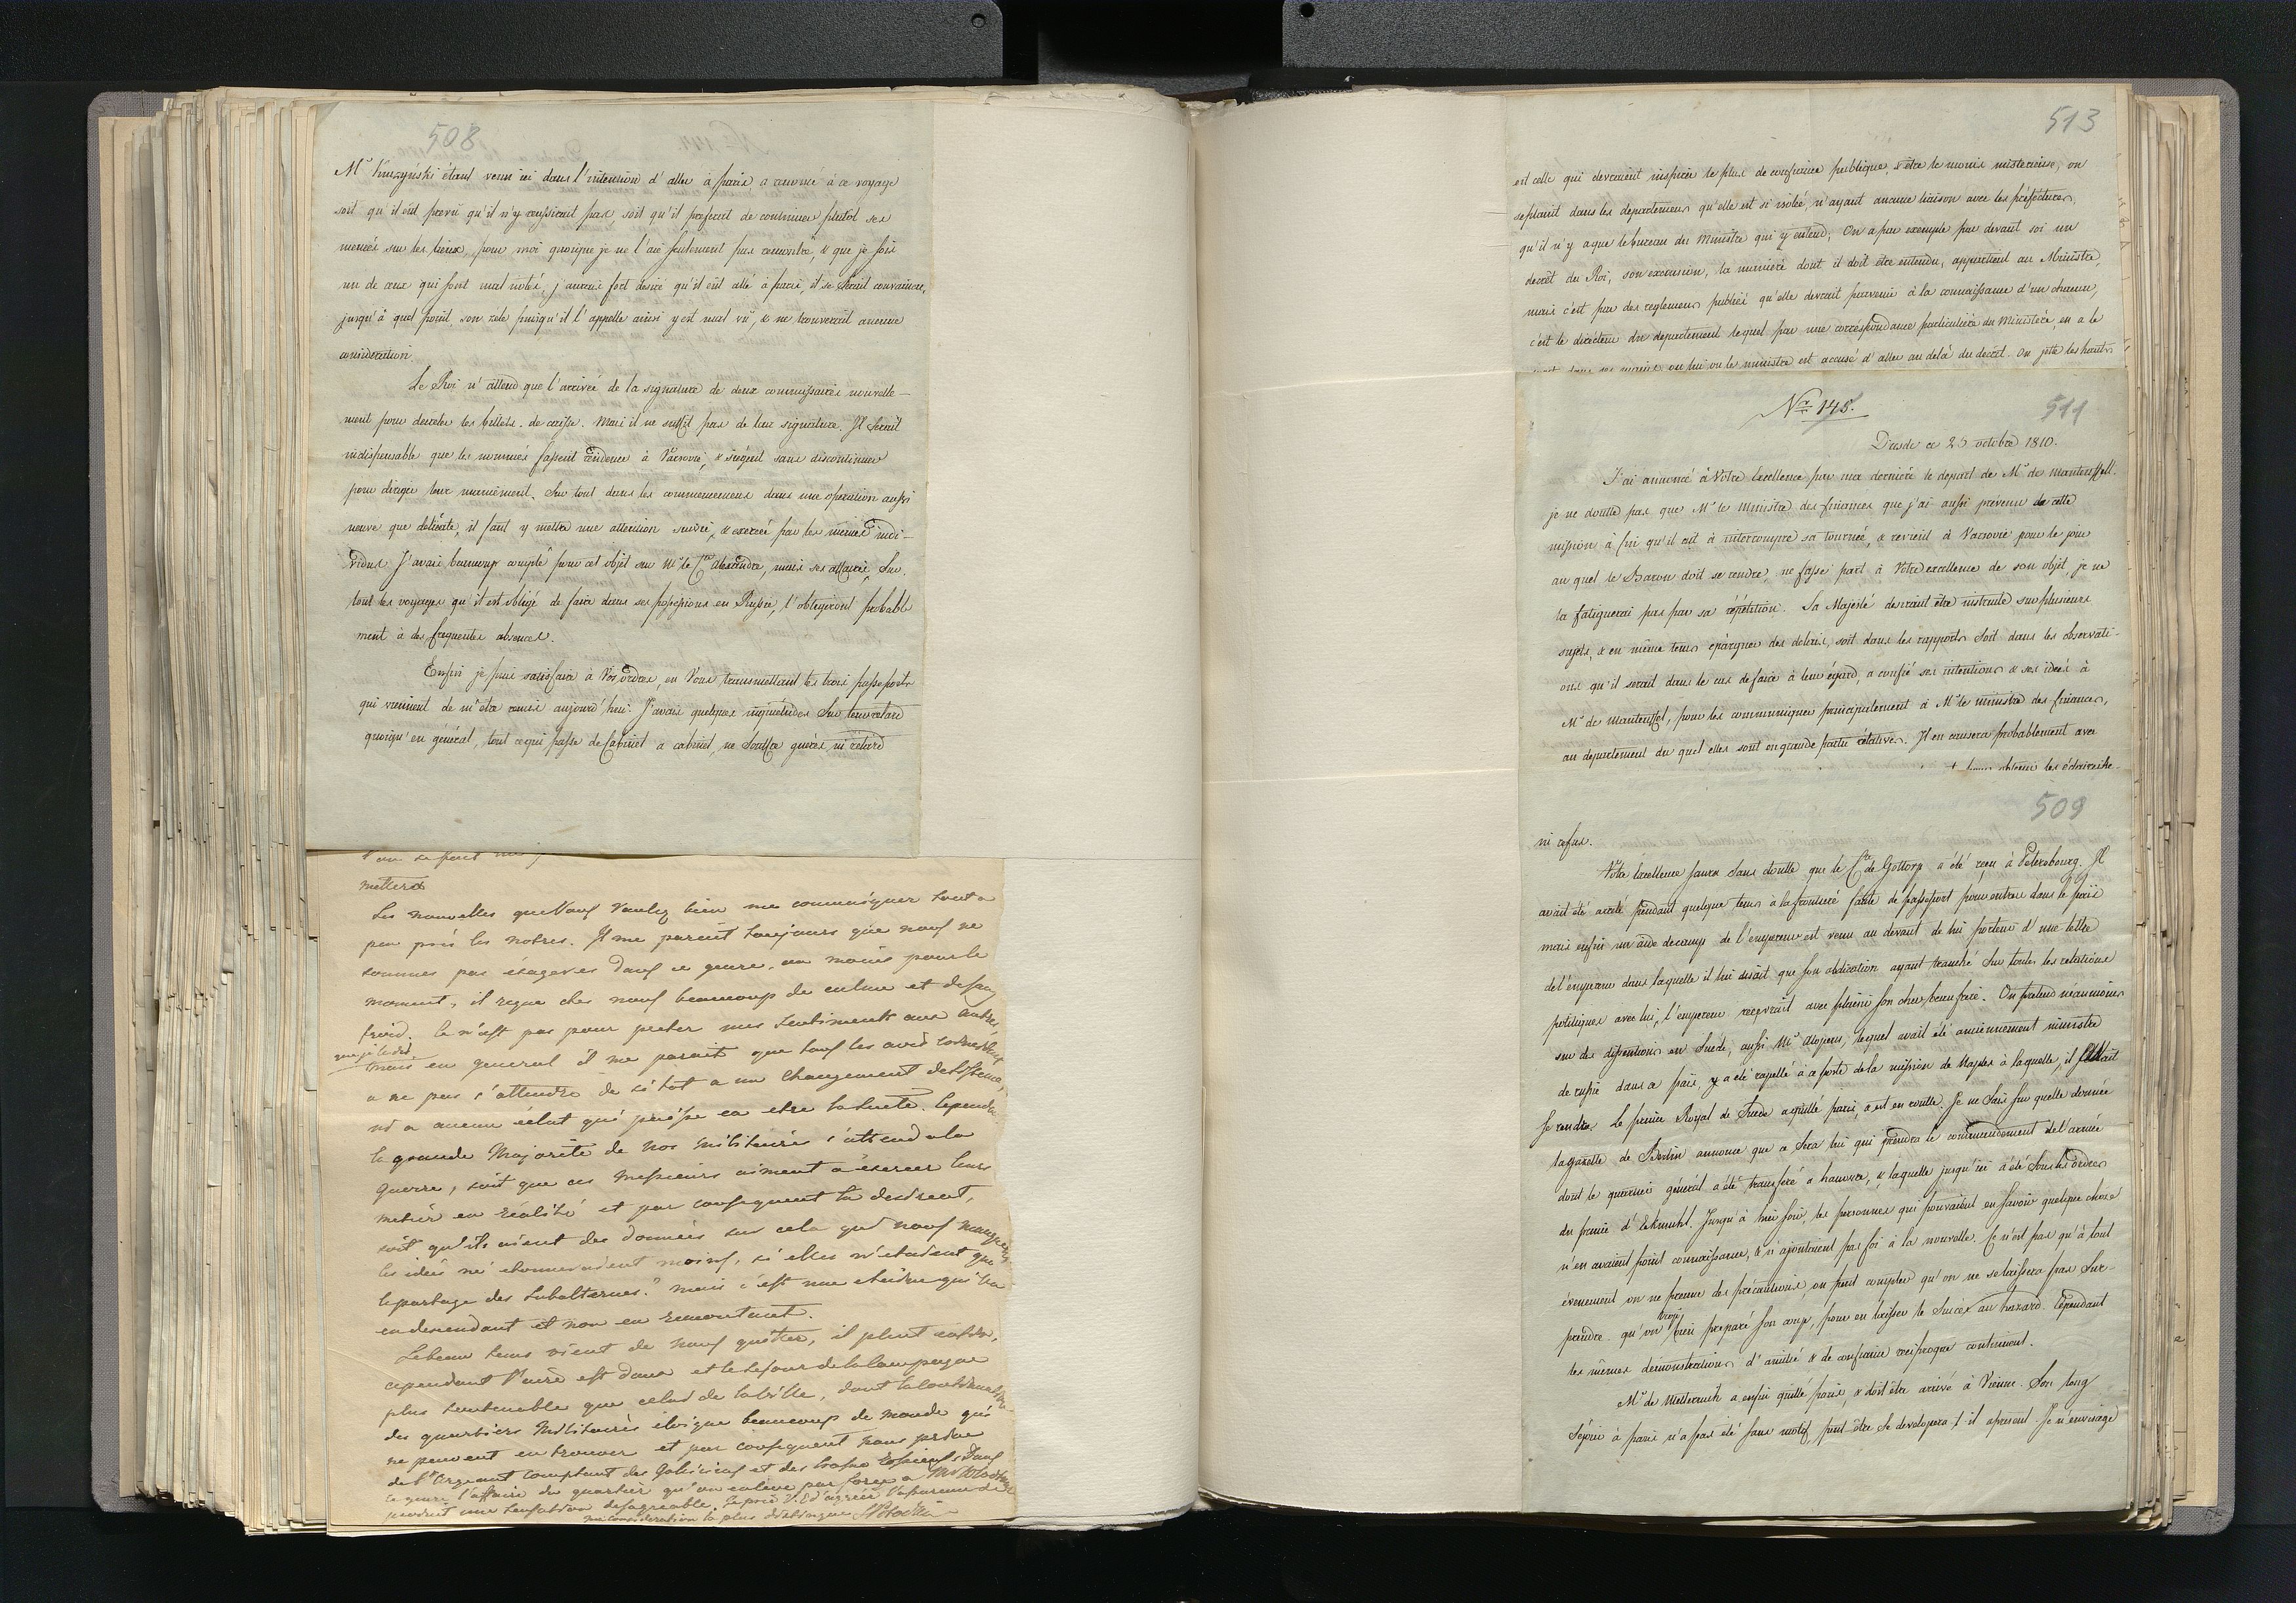 508
Mr Kruszyński étant venu ici dans l'intention d'aller à paris, a renoncé à ce voyage
soit qu'il eût prevû qu'il n'y reussirait pas, soit qu'il preferait de continuer plutôt ses
menées sur les lieux, pour moi quoique je ne l'aie seulement pas rencontré, & que je sois
un de ceux qui sont mal notés, j'aurais fort desiré qu'il eût allé à paris, il se serait convaincu,
jusqu'à quel point, son zele puisqu'il l'appelle ainsi y est mal vû, & ne trouverait aucune
consideration.
Le Roi n'attend que l'arrivée de la signature de deux commissaires nouvelle-
ment pour decreter les billets de caisse. Mais il ne suffit pas de leur signature. Il serait
indispensable que les nommés fassent residence à Varsovie, & siegent sans discontinuer
pour diriger leur maniement. Sur tout dans les commencemens dans une operation aussi
neuve que delicate, il faut y mettre une attention suivie, & exercée par les mêmes indi-
vidus. J'avais beaucoup compté pour cet objet sur Mr le Cte Alexandre, mais ses affaires, sur
tout les voyages qu'il est obligé de faire dans ses possessions en Russie, l'obligeront probable
ment à des frequentes absences.
Enfin je puis satisfaire à Vos ordres, en Vous transmettant les trois passeports
qui viennent de m'être remis aujourd'hui. J'avais quelques inquietudes sur leur retard
quoiqu'en général, tout ce qui passe de Cabinet a cabinet, ne souffre guères ni retard
mettera
Les nouvelles que Vous Voulez bien me communiquer sont a
peu près les notres. Il me parait toujours que nous ne
sommes pas exageres dans ce genre, au moins pour le
moment, il regne chez nous beaucoup de calme et de sang
froid. Ce n'est pas pour preter mes sentiments aux autres,
que je le dis,
mais en general il me parait que tous les avis
a ne pas s'attendre de si tot a un changement de sisteme,
ni a aucun éclat qui puisse en etre la suite. Cependant
la grande Majorité de nos militaires s'attend a la
guerre, soit que ces messieurs aiment a exercer leur
metier en réalité et par consequent la desirent,
soit qu'ils aient des données sur cela qui nous manquent
les idées m'etonneraient moins, si elles n'etaient que
le partage des Subalternes. mais c'est une chaine qui va
en descendant et non en remontant.
Le beau tems vient de nous quitter, il pleut
cependant l'air est doux et le sejour de la Campagne
plus que celui de la Ville, dont la
des quartiers Militaires eloigne beaucoup de monde qui
ne peuvent en trouver et par consequent nous perdons
de l'Argent comptant des Galiciens et des
l'affaire du quartier qu'on enleve par force a
produit une sensation desagreable. Je prie V.E. d'agréer l'assurance de
ma consideration la plus distinguée
513
est celle qui devraient inspirer le plus de confiance publique, & être le moins misterieuse, on
se plaint dans les departemens qu'elle est si isolée, n'ayant aucune liaison avec les préfectures,
qu'il n'y a que le bureau du Ministre qui y entend. On a par exemple par devant soi un
decrêt du Roi, son excursion, la maniere dont il doit être entendu, appartient au Ministre,
mais c'est par des reglemens publiés qu'elle devrait parvenir à la connaissance d'un chacun,
c'est le directeur du departement lequel par une corréspondance particulière du Ministère, en a le
dans ses mains, ou lui ou le ministre est accusé d'aller au delà du decret. On jette les hauts
Nro 145.
511
Dresde ce 25 octobre 1810.
J'ai annoncé à Votre Excellence par ma dernière le depart de Mr de Manteuffell.
je ne doutte pas que Mr le Ministre des finances que j'ai aussi prevenu de cette
mission à fin qu'il ait à interrompre sa tournée, & revienne à Varsovie pour le jour
au quel le Baron doit se rendre, ne fasse part à Votre excellence de son objet, je ne
la fatiguerai pas par sa répétition. Sa Majesté desirant être instruite sur plusieurs
sujets, & en même tems epargner des delais, soit dans les rapports soit dans les observati-
ons qu'il serait dans le cas de faire à leur égard, a confié ses intentions & ses idées à
Mr de Manteuffel, pour les communiquer principalement à Mr le ministre des finances,
au departement du quel elles sont en grande partie rélatives. Il en causera probablement avec
les éclaircisse-
509
ni refus.
Votre Excellence saura sans doutte que le Cte de Gottorp a été reçu à Petersbourg. Il
avait été arrêté pendant quelque tems a la frontière faute de passeport pour entrer dans le païs
mais enfin un aide de camp de l'empereur est venu au devant de lui porteur d'une lettre
de l'empereur dans laquelle il lui disait que son abdication ayant tranché sur toutes les relations
politiques avec lui, l'empereur recevrait avec plaisir son cher beau frère. On pretend néanmoins
sur des dissentions en Suède, aussi Mr Alopeus, lequel avait été anciennement ministre
de russie dans ce païs, y a été rapellé à ce poste de la mission de Naples à laquelle, il allait
se rendre. Le prince Royal de Suede a quitté paris, & est en routte. Je ne sais sur quelle donnée
la gazette de Berlin annonce que ce sera lui qui prendra le commandement de l'armée
dont le quartier général a été transferé à hanovre, & laquelle jusqu'ici a été sous les ordres
du prince d'Ekmuhl. Jusqu'à hier soir, les personnes qui pouvaient en savoir quelque chose
n'en avaient point connaissance, & n'ajoutaient pas foi à la nouvelle. Ce n'est pas qu'à tout
évenement on ne prenne des précautions, on peut compter qu'on ne se laissera pas sur-
prendre. qu'on trop bien preparé son coup, pour en laisser le succès au hazard. Cependant
les mêmes demonstrations d'amitié & de confiance reciproque continuent.
Mr de Metternich a enfin quitté paris, & doit être arrivé à Vienne. Son long
séjour à paris n'a pas été sans motif, peut-être se developera-t-il apresent. Je n'envisage